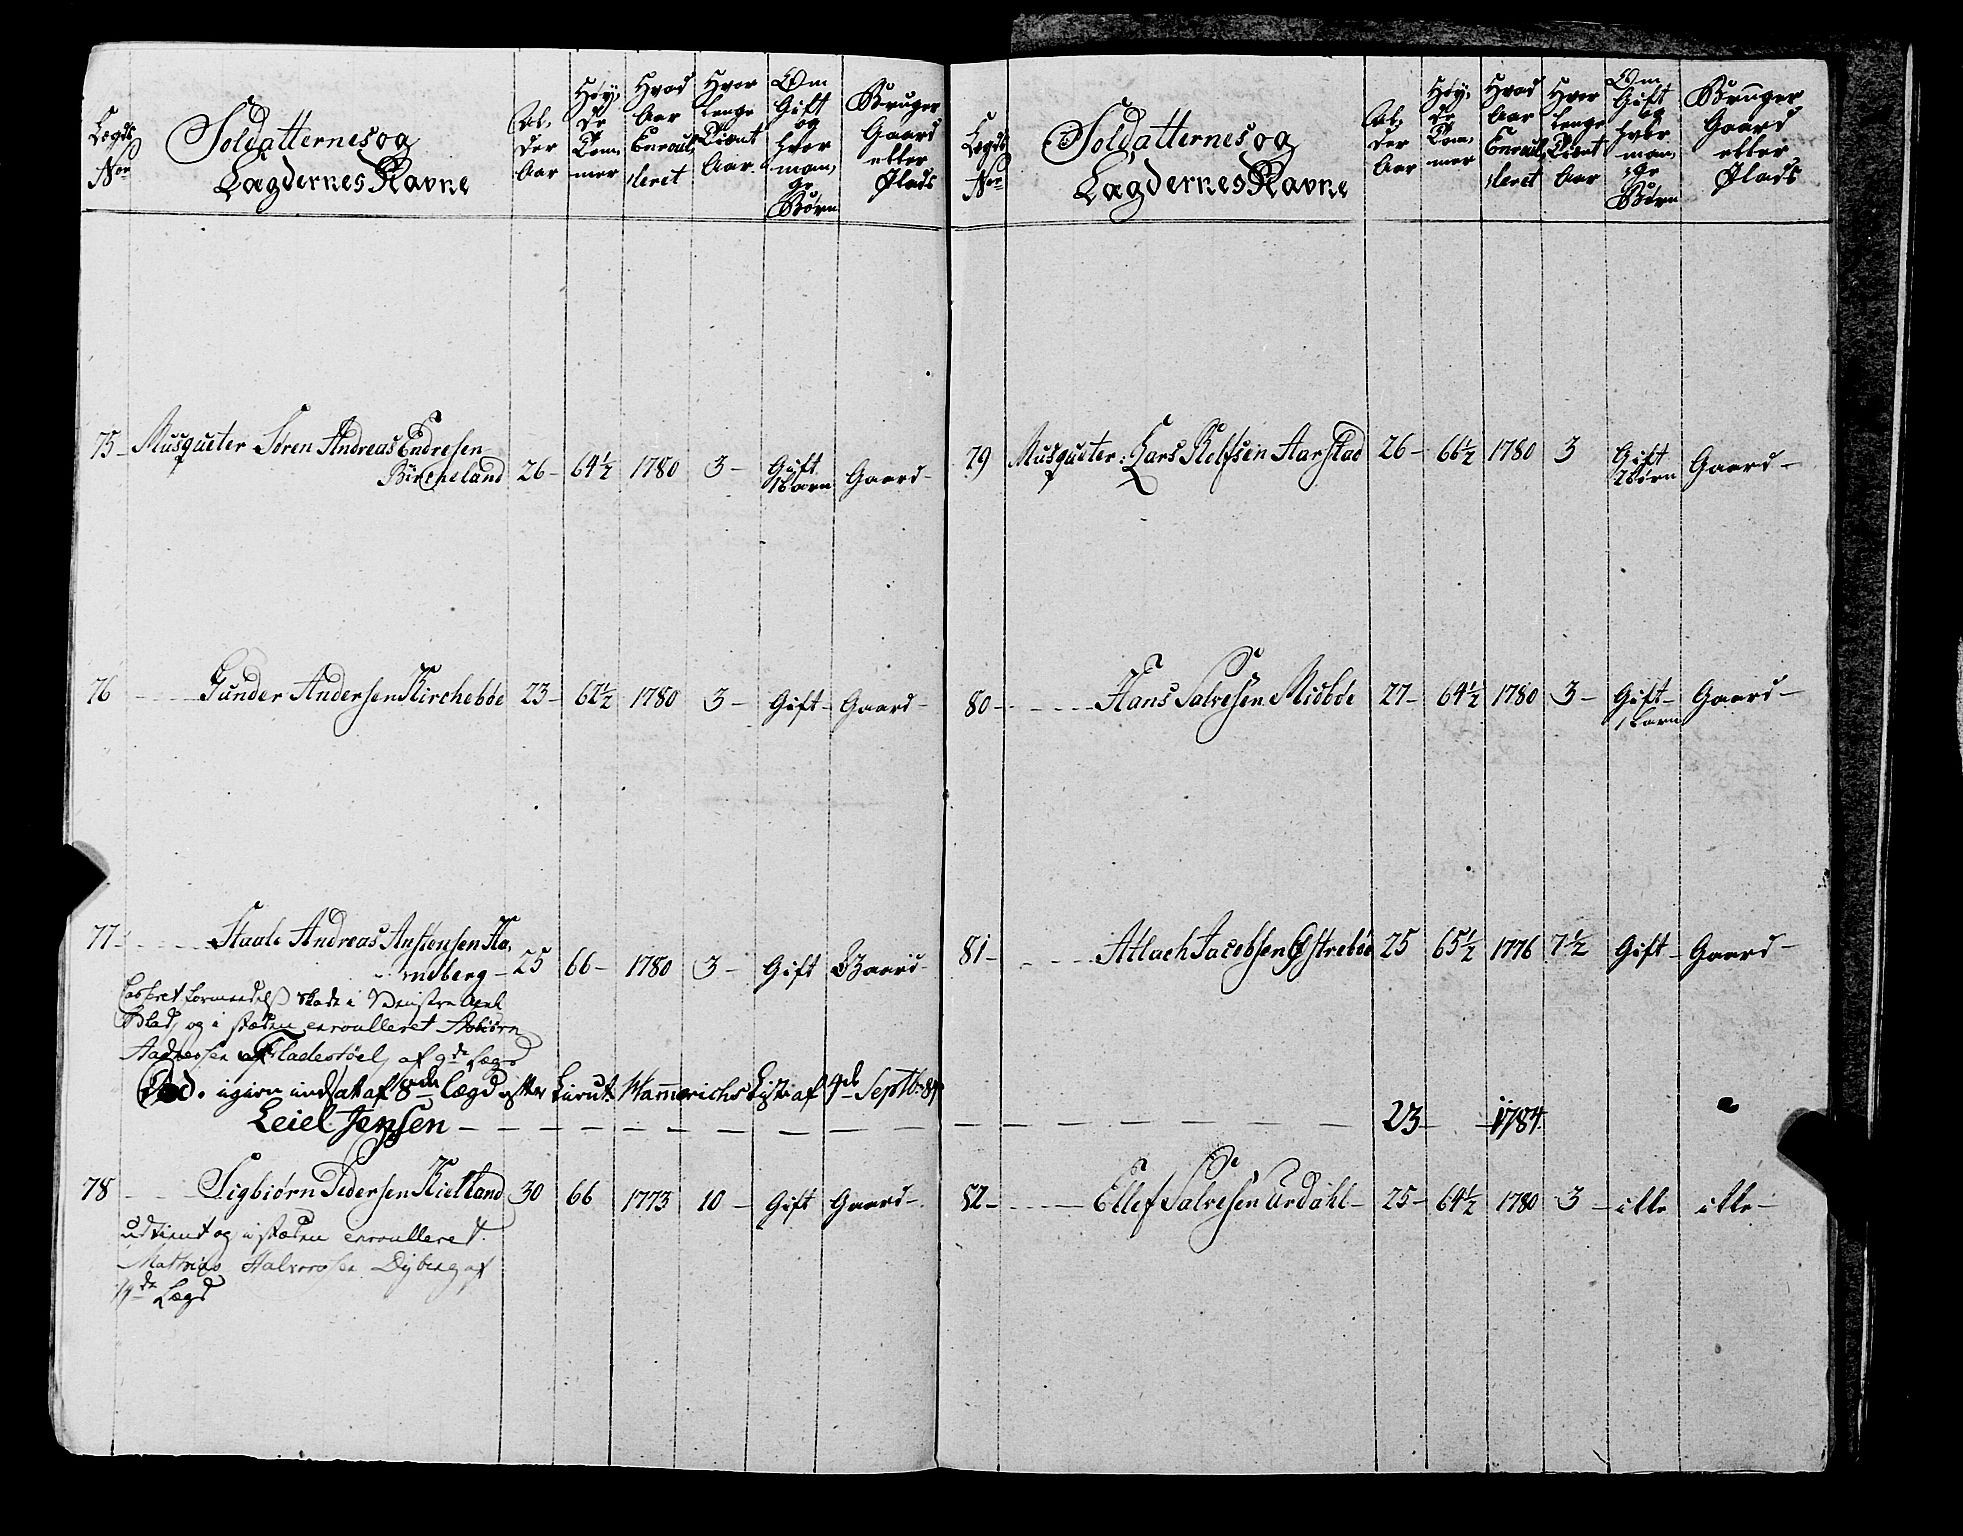 Lægds No
Soldatternes og
Lægdernes Navne
Al,
der
Aar
Høy,
de
Tom,
mer
Hvad
Aar
Enroul,
leret
Hvor
længe
Tient
Aar.
Om
Gift
og
hvor
man,
ge
Børn
Bruger
Gaard
eller
Plads
75 - Musqueter Søren Andreas Endresen
Bircheland 26 - 64½ 1780 3 - Gift 1 barn Gaard -
76 Gunder Andersen Kircheböe 23 - 62½ 1780 3 - Gift - Gaard -
77 - Staale Andreas
berg - 25 66 - 1780 3 - Gift Gaard -
Casseret formedelst skade i Venstre
og i stæden enroulleret
Fladestöel af 9de Lægd
Död. igien indsat af 8de lægd efter Lieut: Hammerichs Liste af 9de Septb: 84
Leiel Jensen - - - 23 1784.
78 Sigbiørn Pedersen Kielland 30 66 1773 10 - Gift Gaard -
udtient og i stæden enroulleret
Mathias Halvorsen Dyberg af
Lægd
Lægds No
Soldatternes og
Lægdernes Navne
Al,
der
Aar
Høy,
de
Tom,
mer
Hvad
Aar
Enroul,
leret
Hvor
længe
Tient
Aar
Om
Gift
og
hvor
man,
ge
Børn
Bruger
Gaard
eller
Plads
79 Musqueter: Lars Rolfsen Aarstad 26 - 66½ 1780 3 Gift 2 börn Gaard -
80 - Hans Salvesen Midböe 27 - 64½ 1780 3 - Gift - 1 barn Gaard -
81 - Atlach Jacobsen Østreböe 25 65½ 1776 7½ Gift - Gaard -
82 - Ellef Salvesen Urdahl - 25 - 64½ 1780 3 - ikke ikke -